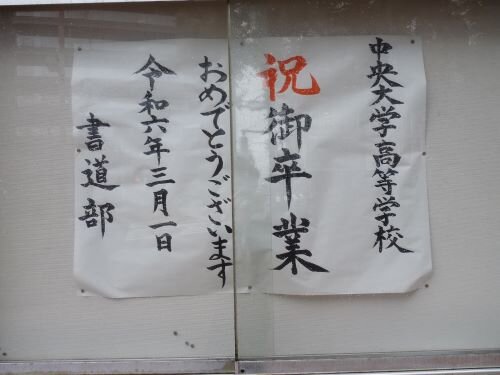 中央大学高等学校
祝御卒業
おめでとうございます
令和六年三月一日
書道部